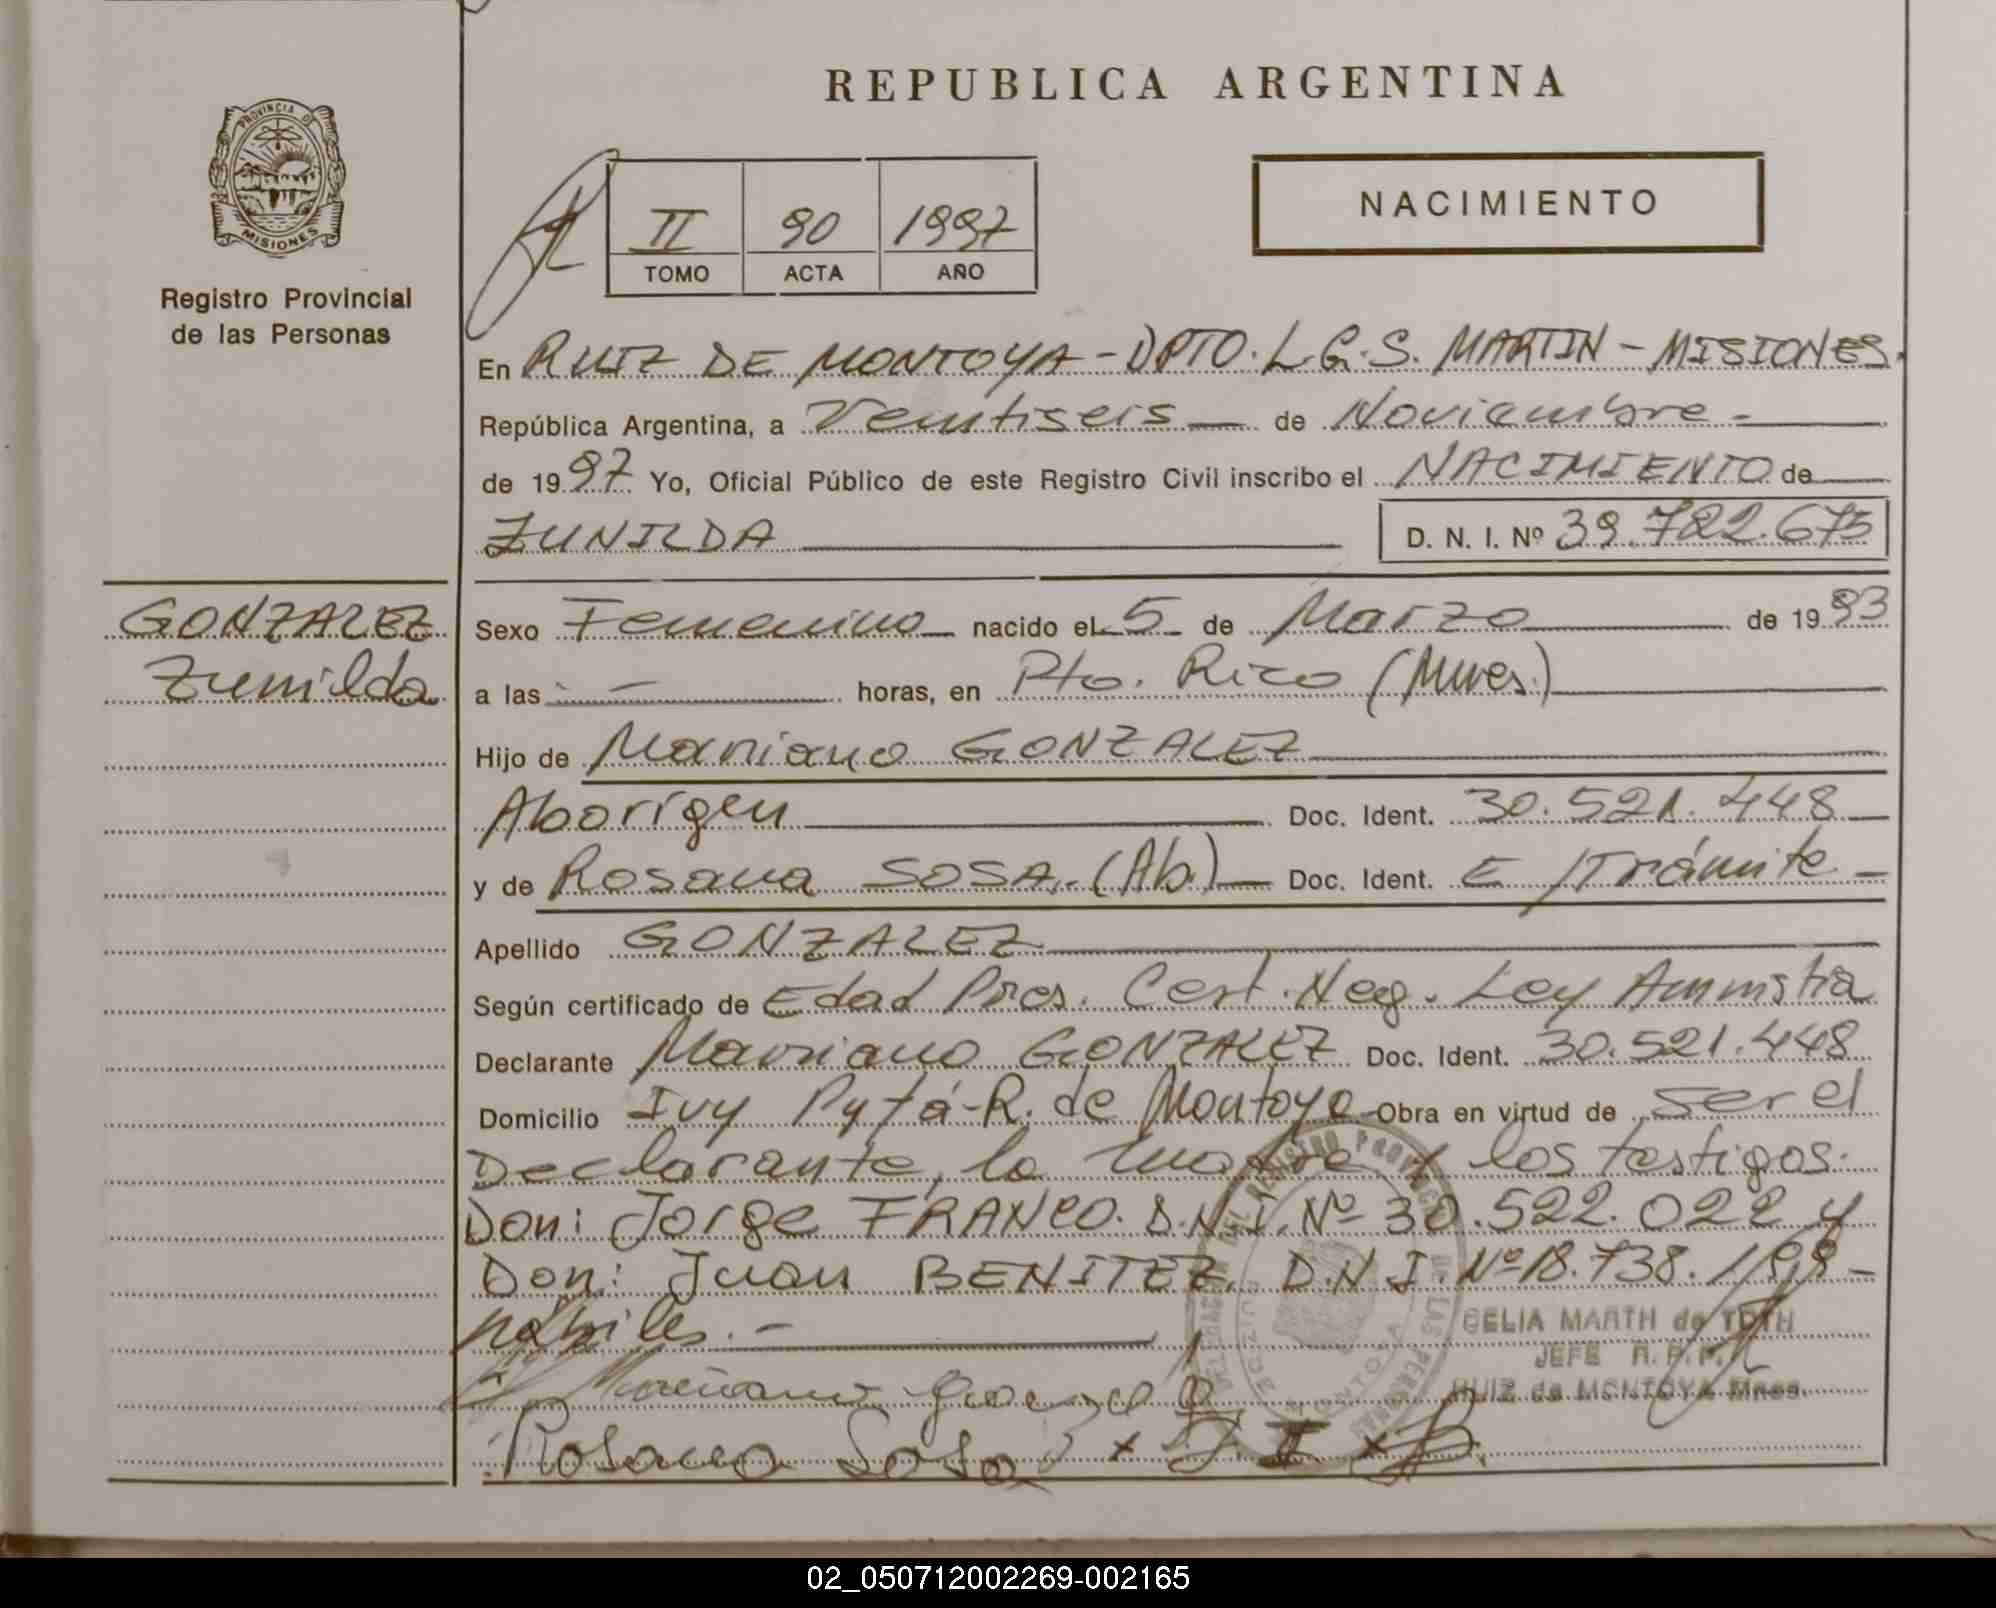 REPUBLICA ARGENTINA
PROVINCIA DE
MISIONES
Registro Provincial
de las Personas
II 90 1997
TOMO ACTA AÑO
NACIMIENTO
En RUIZ DE MONTOYA - DPTO. L.G.S. MARTIN - MISIONES.
República Argentina, a Veintiseis de Noviembre -
de 1997 Yo, Oficial Público de este Registro Civil inscribo el NACIMIENTO de
ZUNILDA D. N. I. Nº 39.782.675
GONZALEZ
Zunilda
Sexo Femenino nacido el 5 de Marzo de 1993
a las - horas, en Pto. Rico (Mnes.)
Hijo de Mariano GONZALEZ
Aborígen Doc. Ident. 30.521.448
y de Rosana SOSA.-(Ab) Doc. Ident. E/Trámite -
Apellido GONZALEZ
Según certificado de Edad Pres. Cert. Neg. Ley Amnistia
Declarante Mariano GONZALEZ Doc. Ident. 30.521.448
Domicilio Ivy Pytá-R. de Montoya Obra en virtud de ser el
Declarante, la madre y los testigos.
Don: Jorge FRANCO. D.N.I. Nº 30.522.022 y
Don: Juan BENITEZ. D.N.I. Nº 18.738.199 -
hábiles. -
CELIA MARTH de TOTH
JEFE R.P.P.
RUIZ de MONTOYA Mnes.
Mariano
Rosana Sosa
02_050712002269-002165